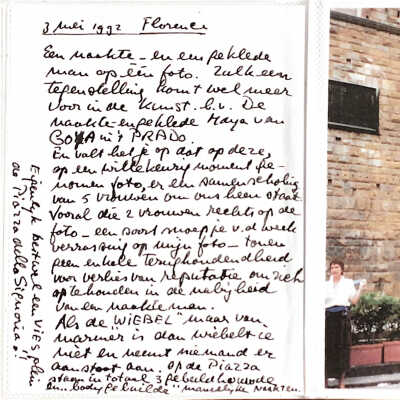 3 mei 1992 Florence
Een naakte - en een geklede
man op één foto. Zulk een
tegenstelling komt wel meer
voor in de kunst. b.v. De
naakte en geklede Maya van
GOYA in 't PRADO.
En valt het je op dat op deze,
op een willekeurig moment ge-
nomen foto, er een samenscholing
van 5 vrouwen om ons heen staat
vooral die 2 vrouwen rechts op de
foto - een soort snoepje v.d. week
verrassing op mijn foto - tonen
geen enkele terughoudendheid
voor verlies van reputatie om zich
op te houden in de nabijheid
van een naakte man.
Als de "WIEBEL" maar van
marmer is dan wiebelt-ie
niet en neemt niemand er
aanstoot aan. Op de Piazza
staan in totaal 3 gebeeldhouwde
en "body gebuilde" mannelijke naakten.
Eigenlijk best wel een VIES plein
de Piazza della Signoria!!